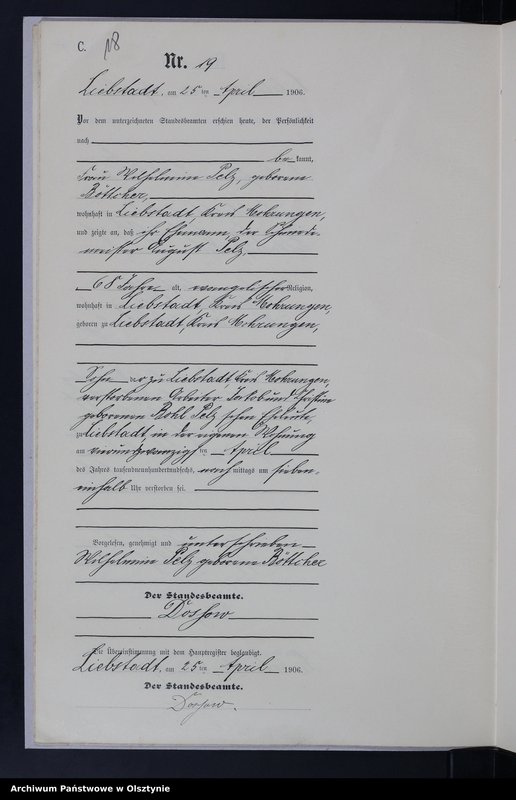 C. 18
Nr. 19
Liebstadt, am 25 ten April 1906.
Vor dem unterzeichneten Standesbeamten erschien heute, der Persönlichkeit
nach
be kannt,
Frau Wilhelmine Pelz, geborene
Böttcher,
wohnhaft in Liebstadt, Kreis Mohrungen,
und zeigte an, daß ihr Ehemann, der
meister August Pelz,
68 Jahre alt, evangelischer Religion,
wohnhaft in Liebstadt, Kreis Mohrungen,
geboren zu Liebstadt, Kreis Mohrungen,
Sohn der zu Liebstadt Kreis Mohrungen
verstorbenen Arbeiter Jakob und
geborenen Pelz schen Eheleute,
zu Liebstadt, in der eigenen Wohnung
am vierundzwanzigsten April
des Jahres tausendneunhundertundsechs, nach mittags um sieben
einhalb Uhr verstorben sei.
Vorgelesen, genehmigt und unterschrieben
Wilhelmine Pelz geborene Böttcher
Der Standesbeamte.
Die Übereinstimmung mit dem Hauptregister beglaubigt.
Liebstadt, am 25 ten April 1906.
Der Standesbeamte.
Archiwum Państwowe w Olsztynie